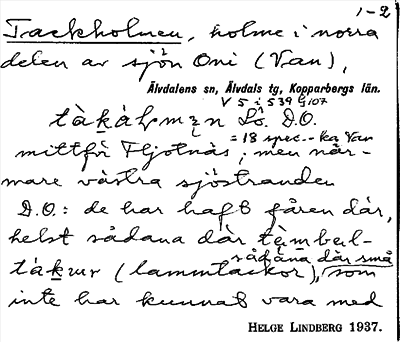 1-2
Tackholmen, holme i norra
delen av sjön Oni (Van),
Älvdalens sn, Älvdals tg, Kopparbergs län.
V 5 i 539 G 107
tàkàḷmɩn Lô. D.O.
= 18 spec. - ka Van
mittför Fljotnäs, men när-
mare västra sjöstranden
D.O.: de har haft fåren där,
helst sådana där tèmbal-
tákur (lammtackor), sådana där små som
inte har kunnat vara med
HELGE LINDBERG 1937.